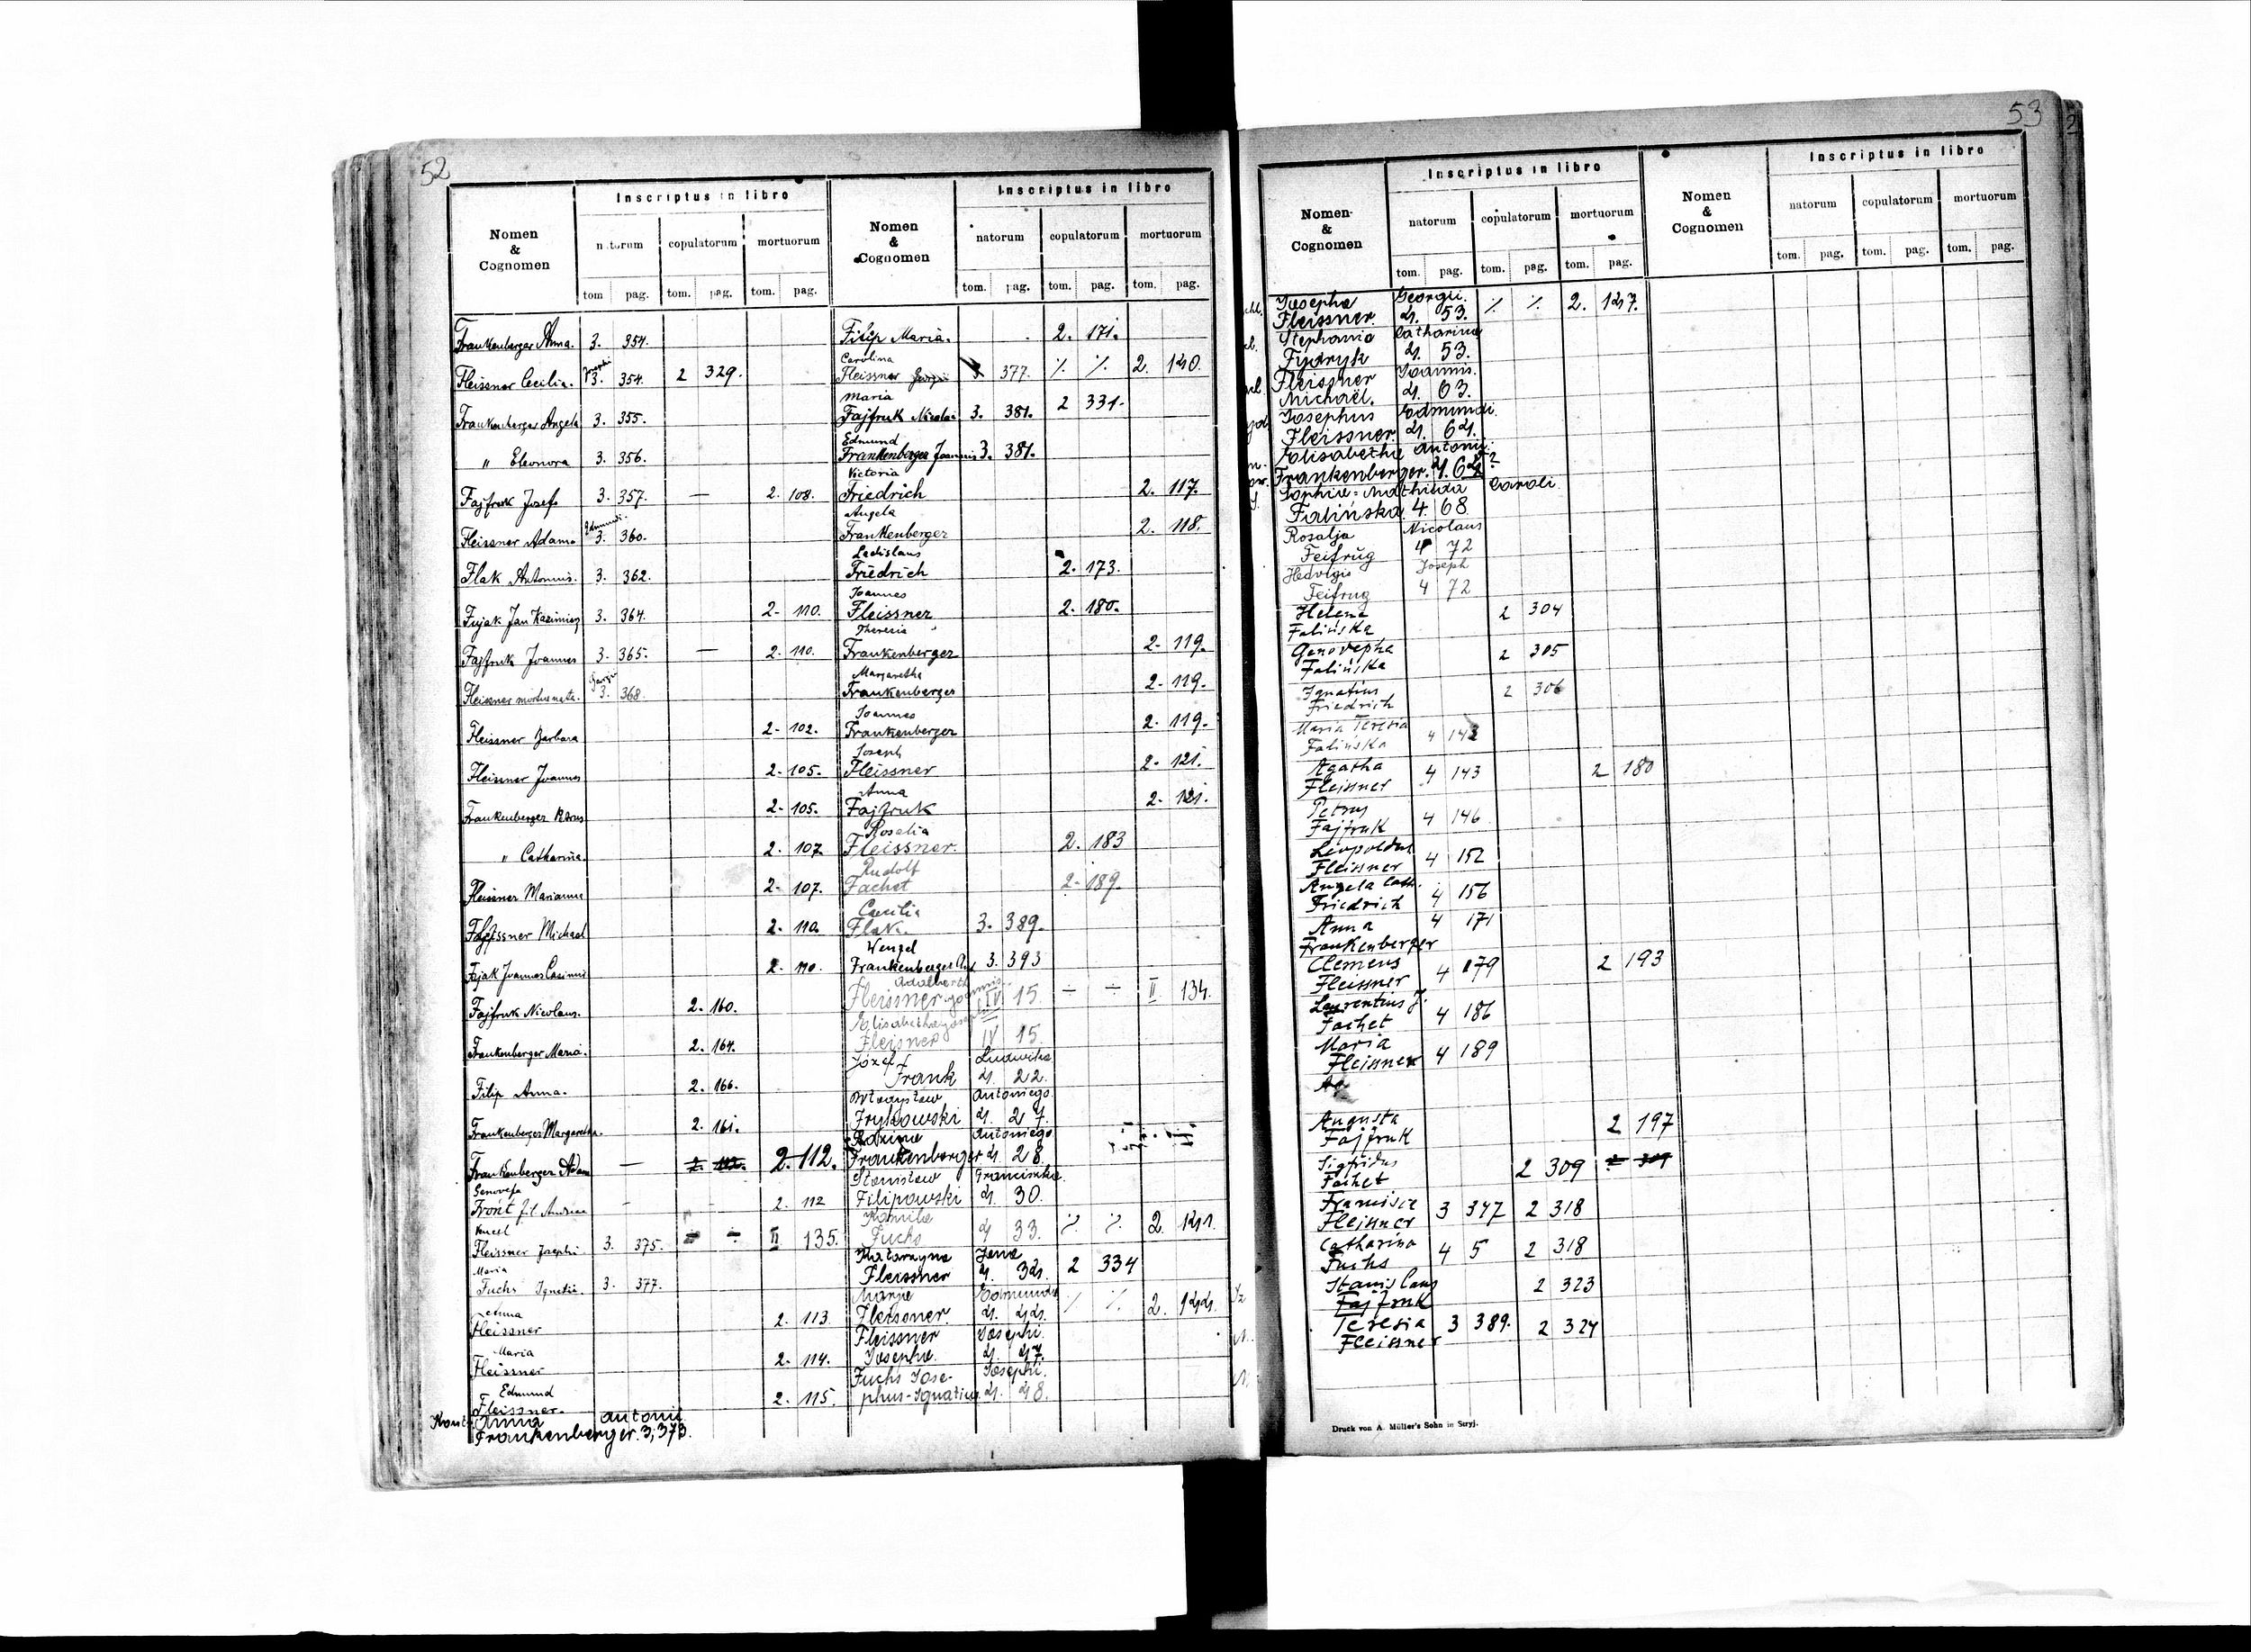 52
Inscriptus in libro
Nomen & Cognomen
natorum copulatorum mortuorum
tom pag. tom. pag. tom. pag.
Frankenberger Anna. 3. 354.
Josephi
Fleissner Cecilia. 3. 354. 2 329.
Frankenberger Angela 3. 355.
" Eleonora 3. 356.
Fajfruk Josef 3. 357. — 2. 108.
Edmundi
Fleissner Adam 3. 360.
Flak Antonius. 3. 362.
Fujak Jan Kazimierz 3. 364. 2- 110.
Fajfruk Joannes 3. 365. — 2. 110.
Georgii
Fleissner mortua nata. 3. 368.
Fleissner Barbara 2- 102.
Fleissner Joannes 2- 105.
Frankenberger Petrus 2- 105.
" Catharina. 2. 107
Fleissner Marianna 2- 107.
Fleissner Michael 2. 110.
Fujak Joannes Casimir 2. 110.
Fajfruk Nicolaus. 2. 160.
Frankenberger Maria. 2. 164.
Filip Anna. 2. 166.
Frankenberger Margaretha. 2. 161.
Frankenberger Adam — 2. 112. 2. 112.
Genovefa
Front fil. Andreae - 2. 112
Fleissner Josephi 3. 375. ÷ ÷ II 135.
Maria
Fuchs Ignatii 3. 377.
Anna
Fleissner 2. 113
Maria
Fleissner 2. 114.
Edmund
Fleissner. 2. 115.
Anna Antonii
Frankenberger. 3, 373.
Inscriptus in libro
Nomen & Cognomen
natorum copulatorum mortuorum
tom. pag. tom. pag. tom. pag.
Filip Maria. 2. 171.
Carolina
Fleissner Georgii 3 377. ./. ./. 2. 140.
Maria
Fajfruk Nicolai 3. 381. 2 331.
Edmund
Frankenberger Joannis 3. 381.
Victoria
Friedrich 2. 117.
Angela
Frankenberger 2. 118.
Ladislaus
Friedrich 2. 173.
Joannes
Fleissner 2. 180.
Theresia
Frankenberger 2- 119.
Margaretha
Frankenberger 2- 119.
Joannes
Frankenberger 2- 119.
Joseph
Fleissner 2- 121.
Anna
Fajfruk 2- 121.
Rosalia
Fleissner. 2. 183
Rudolf
Fachet 2- 189.
Caecilia
Flak 3. 389.
Wenzel
Frankenberger Ant 3. 393
Adalbert
Fleissner Joannis. IV 15. ÷ ÷ II 134.
Elisabetha Josephi
Fleissner IV 15.
Józef Ludwika
Frank 4. 22.
Władysław Antoniego
Frykowski 4. 27.
Antoniego
Frankenberger 4. 28.
Stanisław Franciszka.
Filipowski 4. 30.
Kamila
Fuchs 4 33. ./. ./. 2. 141.
Katarzyna Jana
Fleissner 4. 34. 2 334
Marya Edmunda
Fleissner. 4. 44. ./. ./. 2. 144.
Fleissner Josephi.
Josepha. 4. 47.
Fuchs Jose- Josephi.
phus-Ignatius 4. 48.
53
Inscriptus in libro
Nomen & Cognomen
natorum copulatorum mortuorum
tom. pag. tom. pag. tom. pag.
Josepha Georgii.
Fleissner. 4. 53. ./. ./. 2. 147.
Stephania Catharina
Fydryk 4. 53.
Fleissner Joannis.
Michaël. 4. 63.
Josephus Edmundi.
Fleissner. 4. 64.
Elisabetha Antonii.
Frankenberger. 4. 64?
Sophia-Mathilda Caroli
Falińska 4. 68
Rosalja Nicolaus
Feifrüg 4 72
Hedvigis Joseph
Feifrug 4 72
Helena
Falińska 2 304
Genovepha
Falińska 2 305
Ignatius
Friedrich 2 306
Maria Teresia
Falińska 4 143
Agatha
Fleissner 4 143 2 180
Petrus
Fajfruk 4 146
Leopoldus
Fleissner 4 152
Angela Cath.
Friedrich 4 156
Anna 4 171
Frankenberger
Clemens
Fleissner 4 179 2 193
Laurentius J.
Fachet 4 186
Maria
Fleissner 4 189
Ag
Augusta
Fajfruk 2 197
Sigfridus
Fachet 2 309 2 309
Francisca
Fleissner 3 347 2 318
Catharina
Fuchs 4 5 2 318
Stanislaus
Fajfruk 2 323
Teresia
Fleissner 3 389. 2 324
Inscriptus in libro
Nomen & Cognomen
natorum copulatorum mortuorum
tom. pag. tom. pag. tom. pag.
Druck von A. Müller's Sohn in Stryj.